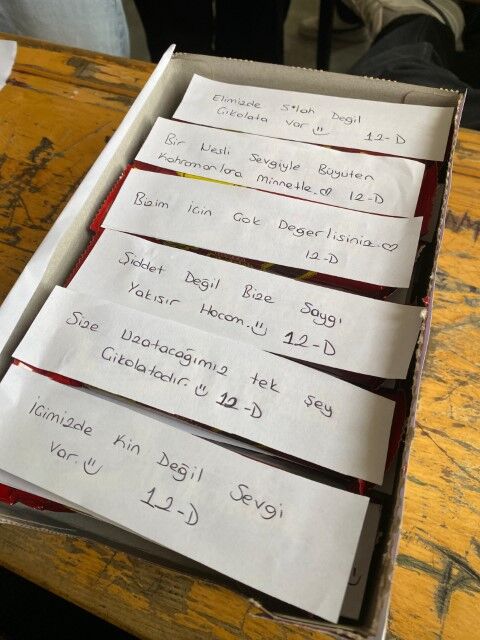 Elimizde S*lah Değil
Çikolata Var. 12-D
Bir Nesli Sevgiyle Büyüten
Kahramanlara minnetle.♡ 12-D
Bizim için Çok Değerlisiniz♡
12-D
Şiddet Değil Bize Saygı
Yakışır Hocam. 12-D
Size Uzatacağımız tek şey
Çikolatadır. 12-D
İçimizde Kin Değil Sevgi
Var. 12-D